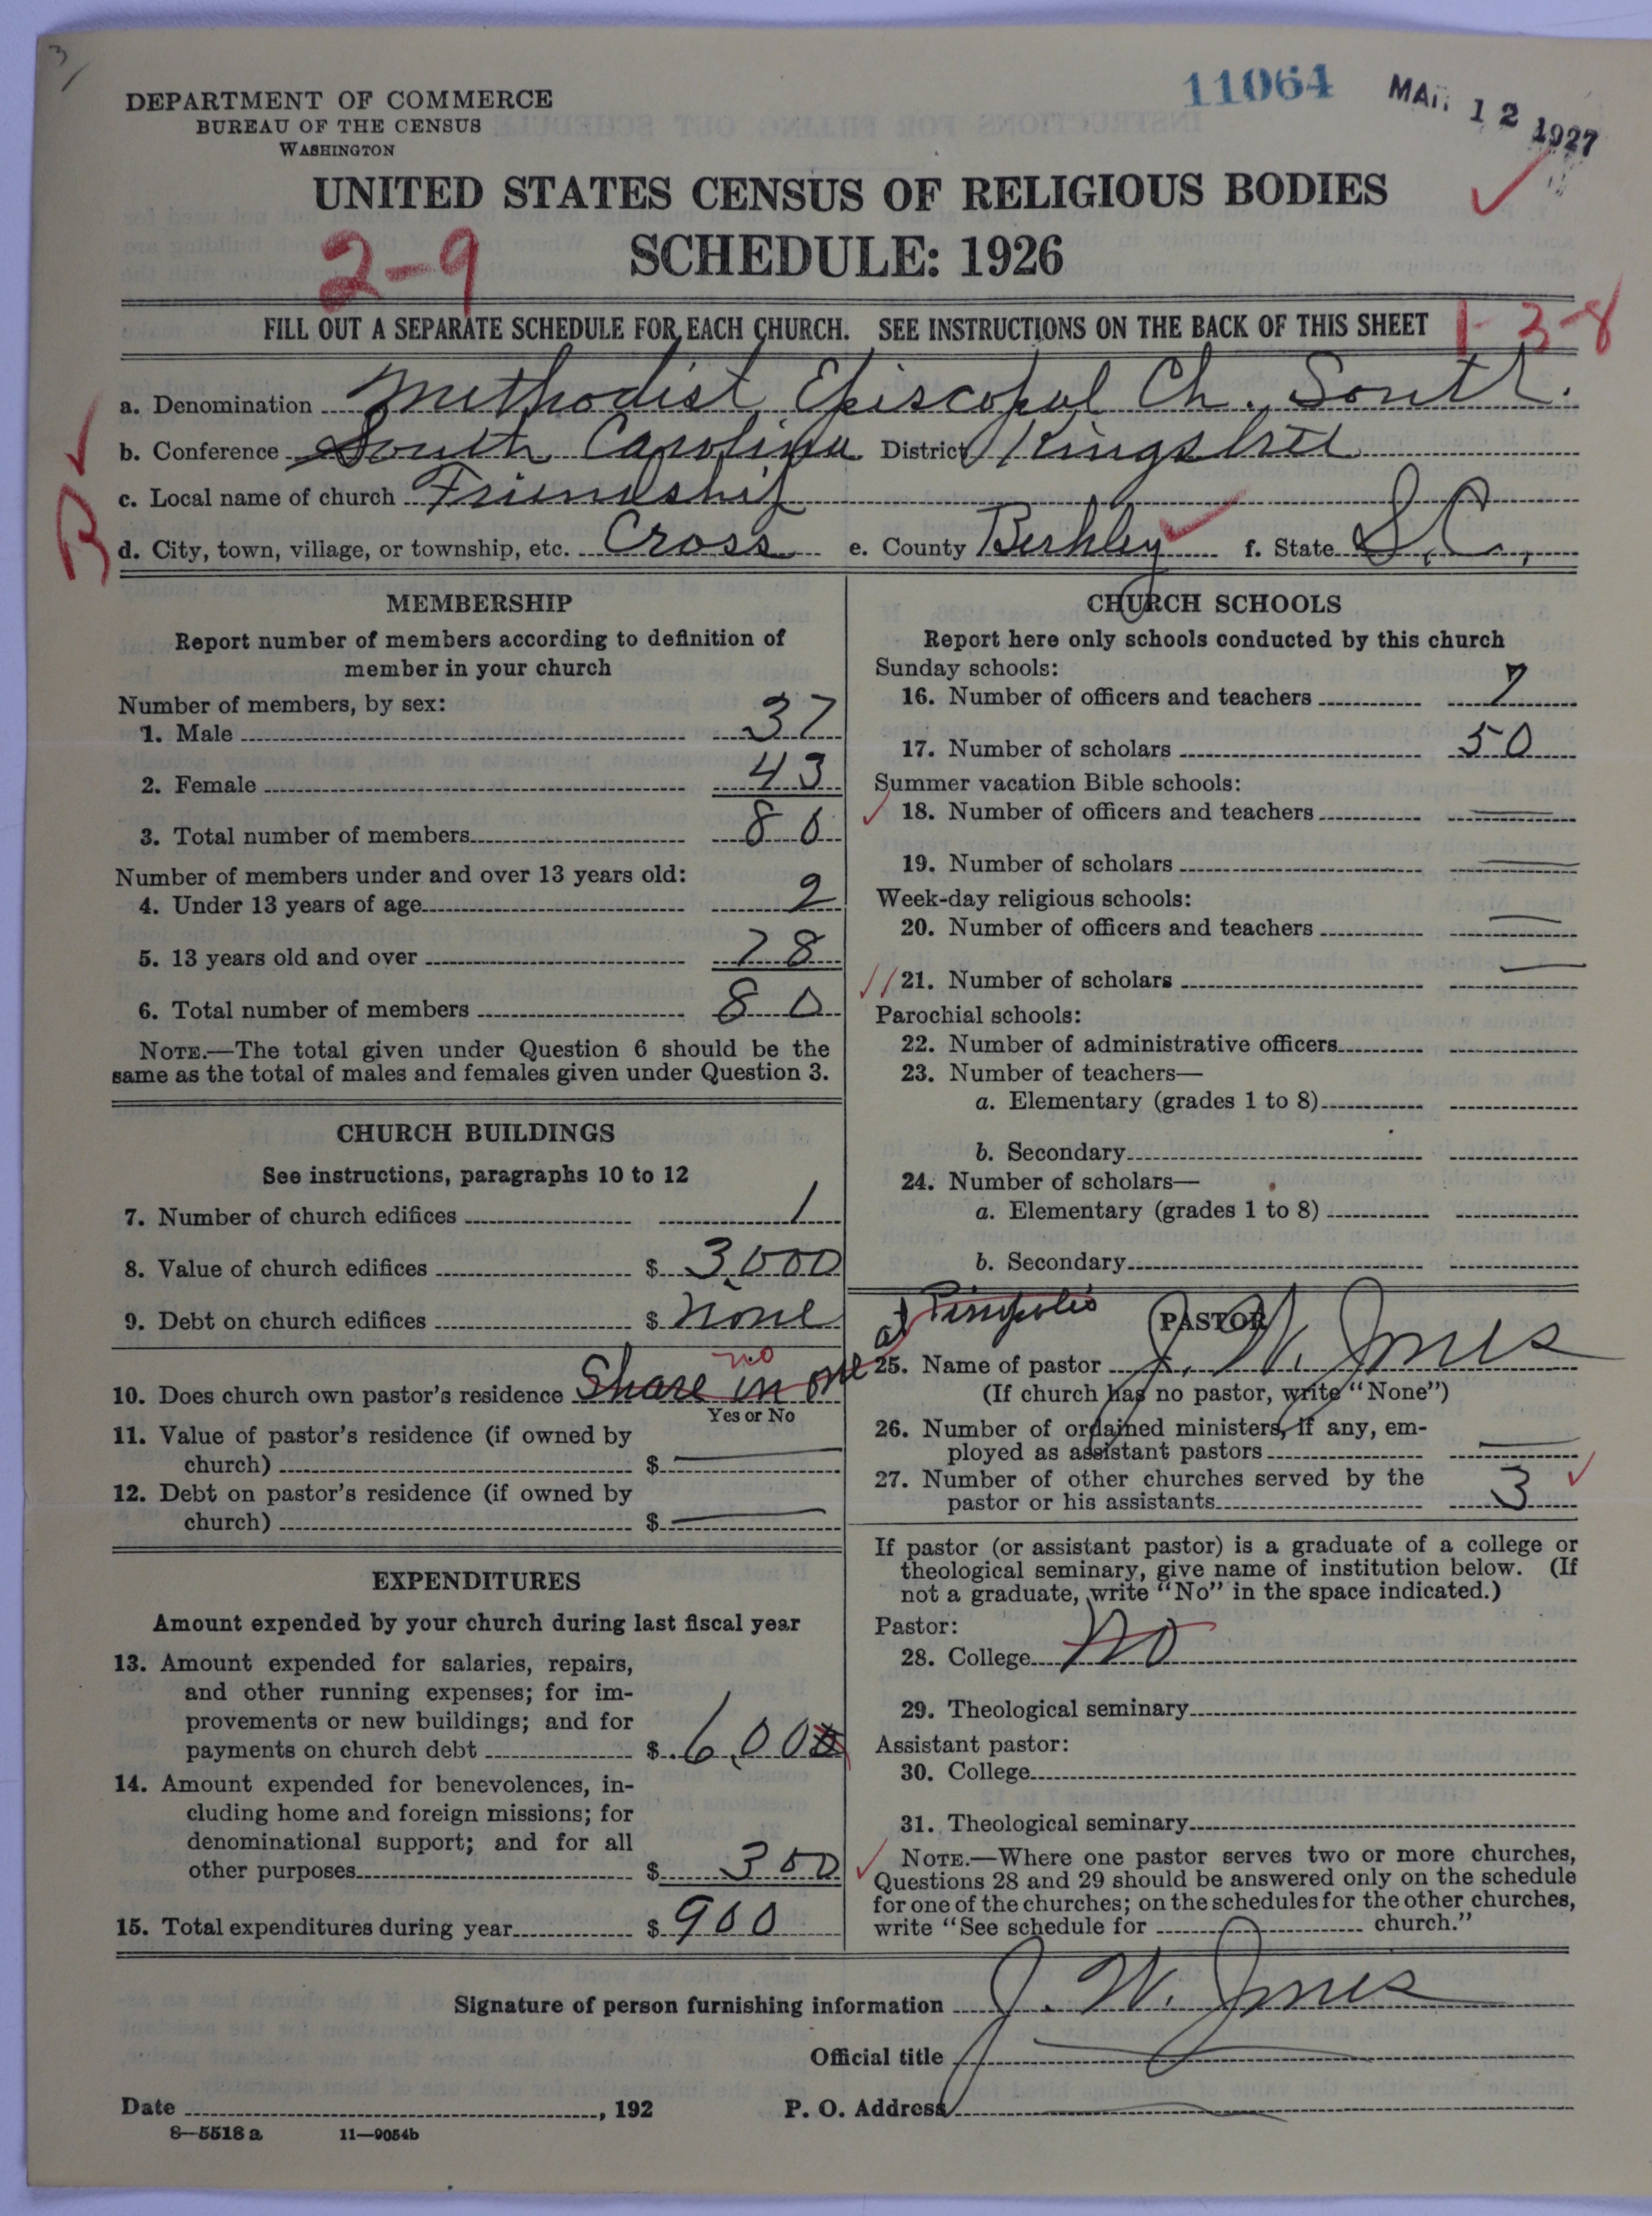 3
11064
MAR 12 1927
DEPARTMENT OF COMMERCE
BUREAU OF THE CENSUS
WASHINGTON
UNITED STATES CENSUS OF RELIGIOUS BODIES
2-9 SCHEDULE: 1926
FILL OUT A SEPARATE SCHEDULE FOR EACH CHURCH. SEE INSTRUCTIONS ON THE BACK OF THIS SHEET 1-3-8
a. Denomination Methodist Episcopal Ch. South.
b. Conference South Carolina District Kingstree
c. Local name of church Friendship
B
d. City, town, village, or township, etc. Cross e. County Berkley f. State S.C.,
MEMBERSHIP
Report number of members according to definition of
member in your church
Number of members, by sex:
1. Male 37
2. Female 43
3. Total number of members 80
Number of members under and over 13 years old:
4. Under 13 years of age 2
5. 13 years old and over 78
6. Total number of members 80
NOTE.—The total given under Question 6 should be the
same as the total of males and females given under Question 3.
CHURCH BUILDINGS
See instructions, paragraphs 10 to 12
7. Number of church edifices 1
8. Value of church edifices $ 3,000
9. Debt on church edifices $ none
no
10. Does church own pastor's residence Share in one at Pinopolis
Yes or No
11. Value of pastor's residence (if owned by
church) $
12. Debt on pastor's residence (if owned by
church) $
EXPENDITURES
Amount expended by your church during last fiscal year
13. Amount expended for salaries, repairs,
and other running expenses; for im-
provements or new buildings; and for
payments on church debt $ 6,000
14. Amount expended for benevolences, in-
cluding home and foreign missions; for
denominational support; and for all
other purposes $ 300
15. Total expenditures during year $ 900
CHURCH SCHOOLS
Report here only schools conducted by this church
Sunday schools:
16. Number of officers and teachers 7
17. Number of scholars 50
Summer vacation Bible schools:
18. Number of officers and teachers
19. Number of scholars
Week-day religious schools:
20. Number of officers and teachers
21. Number of scholars
Parochial schools:
22. Number of administrative officers
23. Number of teachers—
a. Elementary (grades 1 to 8)
b. Secondary
24. Number of scholars—
a. Elementary (grades 1 to 8)
b. Secondary
PASTOR
25. Name of pastor J. W. Jones
(If church has no pastor, write "None")
26. Number of ordained ministers, if any, em-
ployed as assistant pastors
27. Number of other churches served by the
pastor or his assistants 3
If pastor (or assistant pastor) is a graduate of a college or
theological seminary, give name of institution below. (If
not a graduate, write "No" in the space indicated.)
Pastor:
28. College No
29. Theological seminary
Assistant pastor:
30. College
31. Theological seminary
NOTE.—Where one pastor serves two or more churches,
Questions 28 and 29 should be answered only on the schedule
for one of the churches; on the schedules for the other churches,
write "See schedule for church."
Signature of person furnishing information J. W. Jones
Official title
Date , 192 P. O. Address
8—5518 a 11—9054b